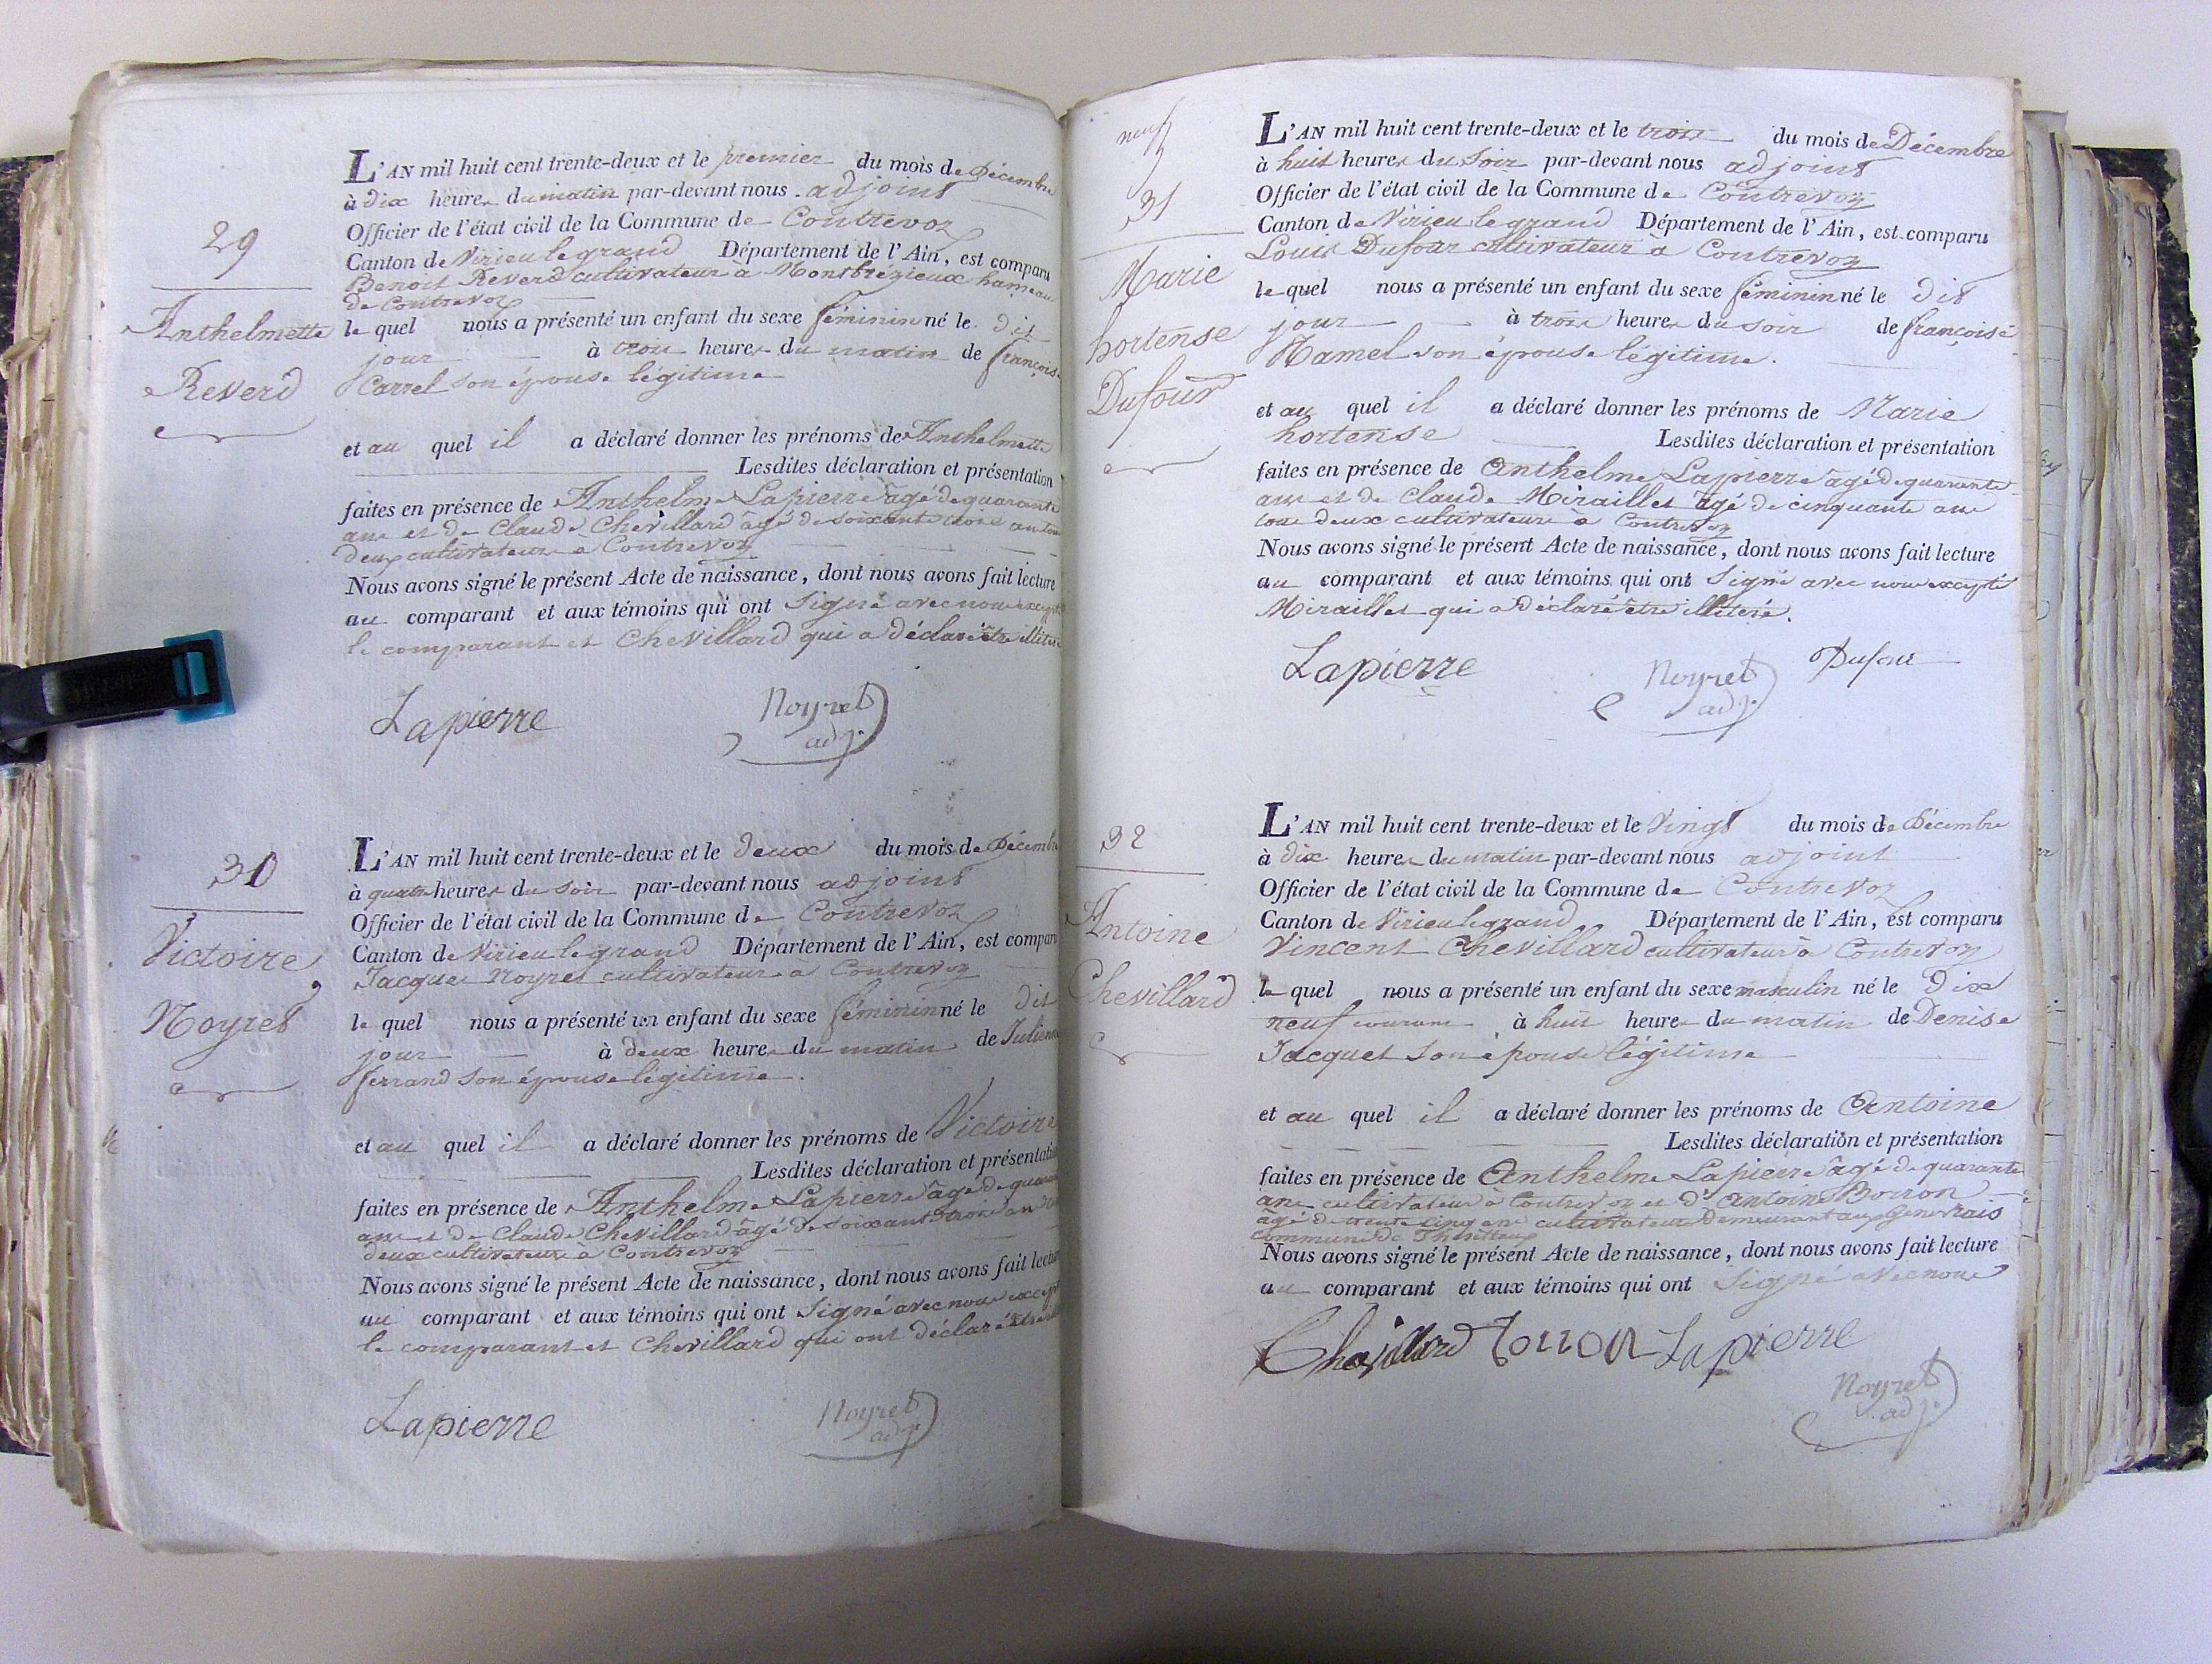 29
Anthelmette
Reverd
L'AN mil huit cent trente-deux et le premier du mois de Décembre
à dix heures du matin par-devant nous adjoint
Officier de l'état civil de la Commune de Contrevoz
Canton de Virieu le grand Département de l'Ain, est comparu
Benoit Reverd cultivateur à Montbrézieux hameau
de Contrevoz
le quel nous a présenté un enfant du sexe féminin né le dit
jour à trois heures du matin de françoise
Carrel son épouse légitime
et au quel il a déclaré donner les prénoms de Anthelmette
Lesdites déclaration et présentation
faites en présence de Anthelme Lapierre âgé de quarante
ans et de Claude Chevillard âgé de soixante trois ans tous
deux cultivateurs à Contrevoz
Nous avons signé le présent Acte de naissance, dont nous avons fait lecture
au comparant et aux témoins qui ont signé avec nous excepté
le comparant et Chevillard qui a déclaré être illiteré
Lapierre Noyret
adj.
30
Victoire
Noyret
L'AN mil huit cent trente-deux et le deux du mois de Décembre
à quatre heures du soir par-devant nous adjoint
Officier de l'état civil de la Commune de Contrevoz
Canton de Virieu le grand Département de l'Ain, est comparu
Jacques Noyret cultivateur à Contrevoz
le quel nous a présenté un enfant du sexe féminin né le dit
jour à deux heures du matin de Julienne
ferrand son épouse légitime.
et au quel il a déclaré donner les prénoms de Victoire
Lesdites déclaration et présentation
faites en présence de Anthelme Lapierre âgé de quarante
ans et de Claude Chevillard âgé de soixante trois ans tous
deux cultivateurs à Contrevoz
Nous avons signé le présent Acte de naissance, dont nous avons fait lecture
au comparant et aux témoins qui ont signé avec nous excepté
le comparant et Chevillard qui ont déclaré être
Lapierre Noyret
adj.
neuf
31
Marie
hortense
Dufour
L'AN mil huit cent trente-deux et le trois du mois de Décembre
à huit heures du soir par-devant nous adjoint
Officier de l'état civil de la Commune de Contrevoz
Canton de Virieu le grand Département de l'Ain, est comparu
Louis Dufour cultivateur à Contrevoz
le quel nous a présenté un enfant du sexe féminin né le dit
jour à trois heures du soir de françoise
Hamel son épouse légitime.
et au quel il a déclaré donner les prénoms de Marie
hortense Lesdites déclaration et présentation
faites en présence de Anthelme Lapierre âgé de quarante
ans et de Claude Miraillet âgé de cinquante ans
tous deux cultivateurs à Contrevoz
Nous avons signé le présent Acte de naissance, dont nous avons fait lecture
au comparant et aux témoins qui ont signé avec nous excepté
Miraillet qui a déclaré être illiteré.
Lapierre Noyret Dufour
adj.
32
Antoine
Chevillard
L'AN mil huit cent trente-deux et le vingt du mois de Décembre
à dix heures du matin par-devant nous adjoint
Officier de l'état civil de la Commune de Contrevoz
Canton de Virieu le grand Département de l'Ain, est comparu
Vincent Chevillard cultivateur à Contrevoz
le quel nous a présenté un enfant du sexe masculin né le Dix
neuf courant à huit heures du matin de Denise
Jacquet son épouse légitime
et au quel il a déclaré donner les prénoms de Antoine
Lesdites déclaration et présentation
faites en présence de Anthelme Lapierre âgé de quarante
ans cultivateur à Contrevoz et d'Antoine
âgé de trente cinq ans cultivateur demeurant aux
commune de
Nous avons signé le présent Acte de naissance, dont nous avons fait lecture
au comparant et aux témoins qui ont signé avec nous
Chevillard Lapierre
Noyret
adj.